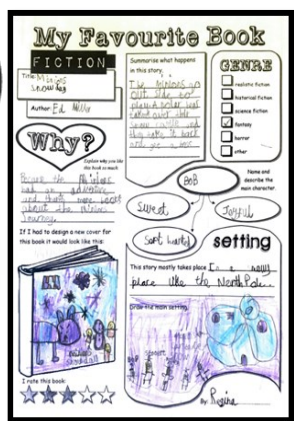 My Favourite Book
FICTION
Title: Minions
Snow day
Author: Ed Miller
Summarise what happens
in this story.
The minions go
out side and
play a polar bear
and
take it back
and
GENRE
realistic fiction
historical fiction
science fiction
fantasy
horror
other
Why?
Explain why you like
this book so much.
the Minions
had an adventure
and more books
about the minions
Journey.
BoB
Name and
describe the
main character.
Sweet
Joyful
Soft hearted
If I had to design a new cover for
this book it would look like this:
setting
This story mostly takes place In a snowy
place like the North Pole.
Draw the main setting.
I rate this book:
By: Regina